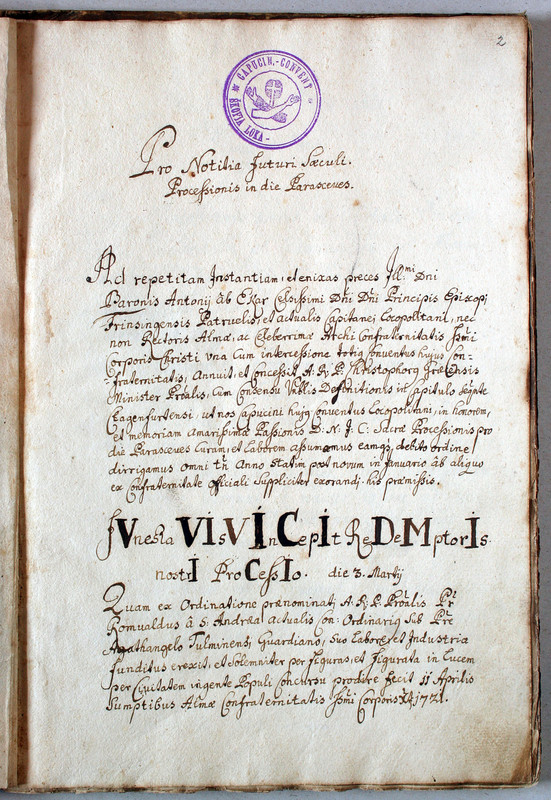 2
CAPUCIN.-CONVENT
ŠKOFJA LOKA
Pro Notitia futuri Sæculi.
Processionis in die Parasceves.
Ad repetitam Instantiam, et enixas preces Ill:mi Dni
Baronis Antonij ab Ekar Celsissimi Dni Dni Principis Episcopi
Frinsingensis Patruelis, et actualis Capitanei Locopolitani, nec
non Rectoris Almæ, ac Celeberrimæ Archi Confraternitatis Ssmi
Corporis Christi una Cum intercessione totiq conventus hujus con-
fraternitatis, Annuit, et concessit A: R: P: Christophorq Græcensis
Minister Provalis, Cum Consensu Definitionis in Capitulo
Clagenfurtensi, ut nos capucini hujq Conventus Locopolitani, in honorem,
et memoriam amarissimæ Passionis D: N: J: C: Sacræ Processionis pro
die Parasceves Curam, et Laborem assumamus eamq, debito ordine
dirrigamus omni tñ Anno statim post novum in Januario ab aliquo
ex Confraternitate officiali Suppliciter exorandj. his præmissis.
fVnesta VIsVInCepIt ReDeMptorIs
nostrI ProCessIo. die 3. Martij
Quam ex Ordinatione prænominatj A. R: P. Pr
Romualdus â S: Andrea actualis Con: Ordinariq Sub Pre
Agathangelo Tulminensi, Guardiano, Suo Labore, et Industria
funditus erexit, et Solemniter per figuras, et Figurata in Lucem
per Civitatem ingente Populi Concursu prodire fecit 11 Aprilis
Sumptibus Almæ Confraternitatis Ssmi Corporis Xti 1721.